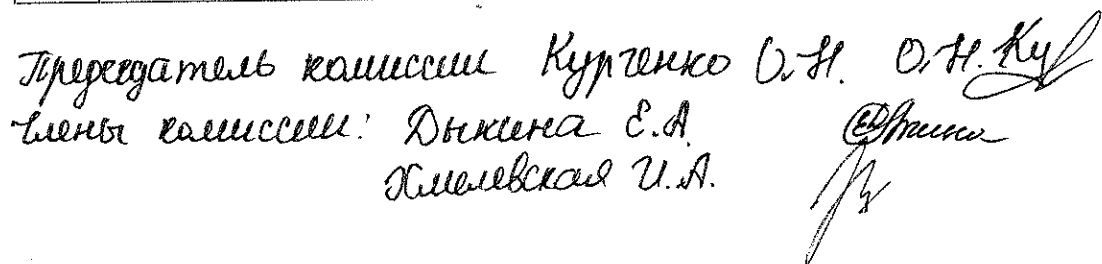 Председатель комиссии Курченко О.Н. О.Н. Ку
Члены комиссии: Дыкина Е.А.
Хмелевская И.А.